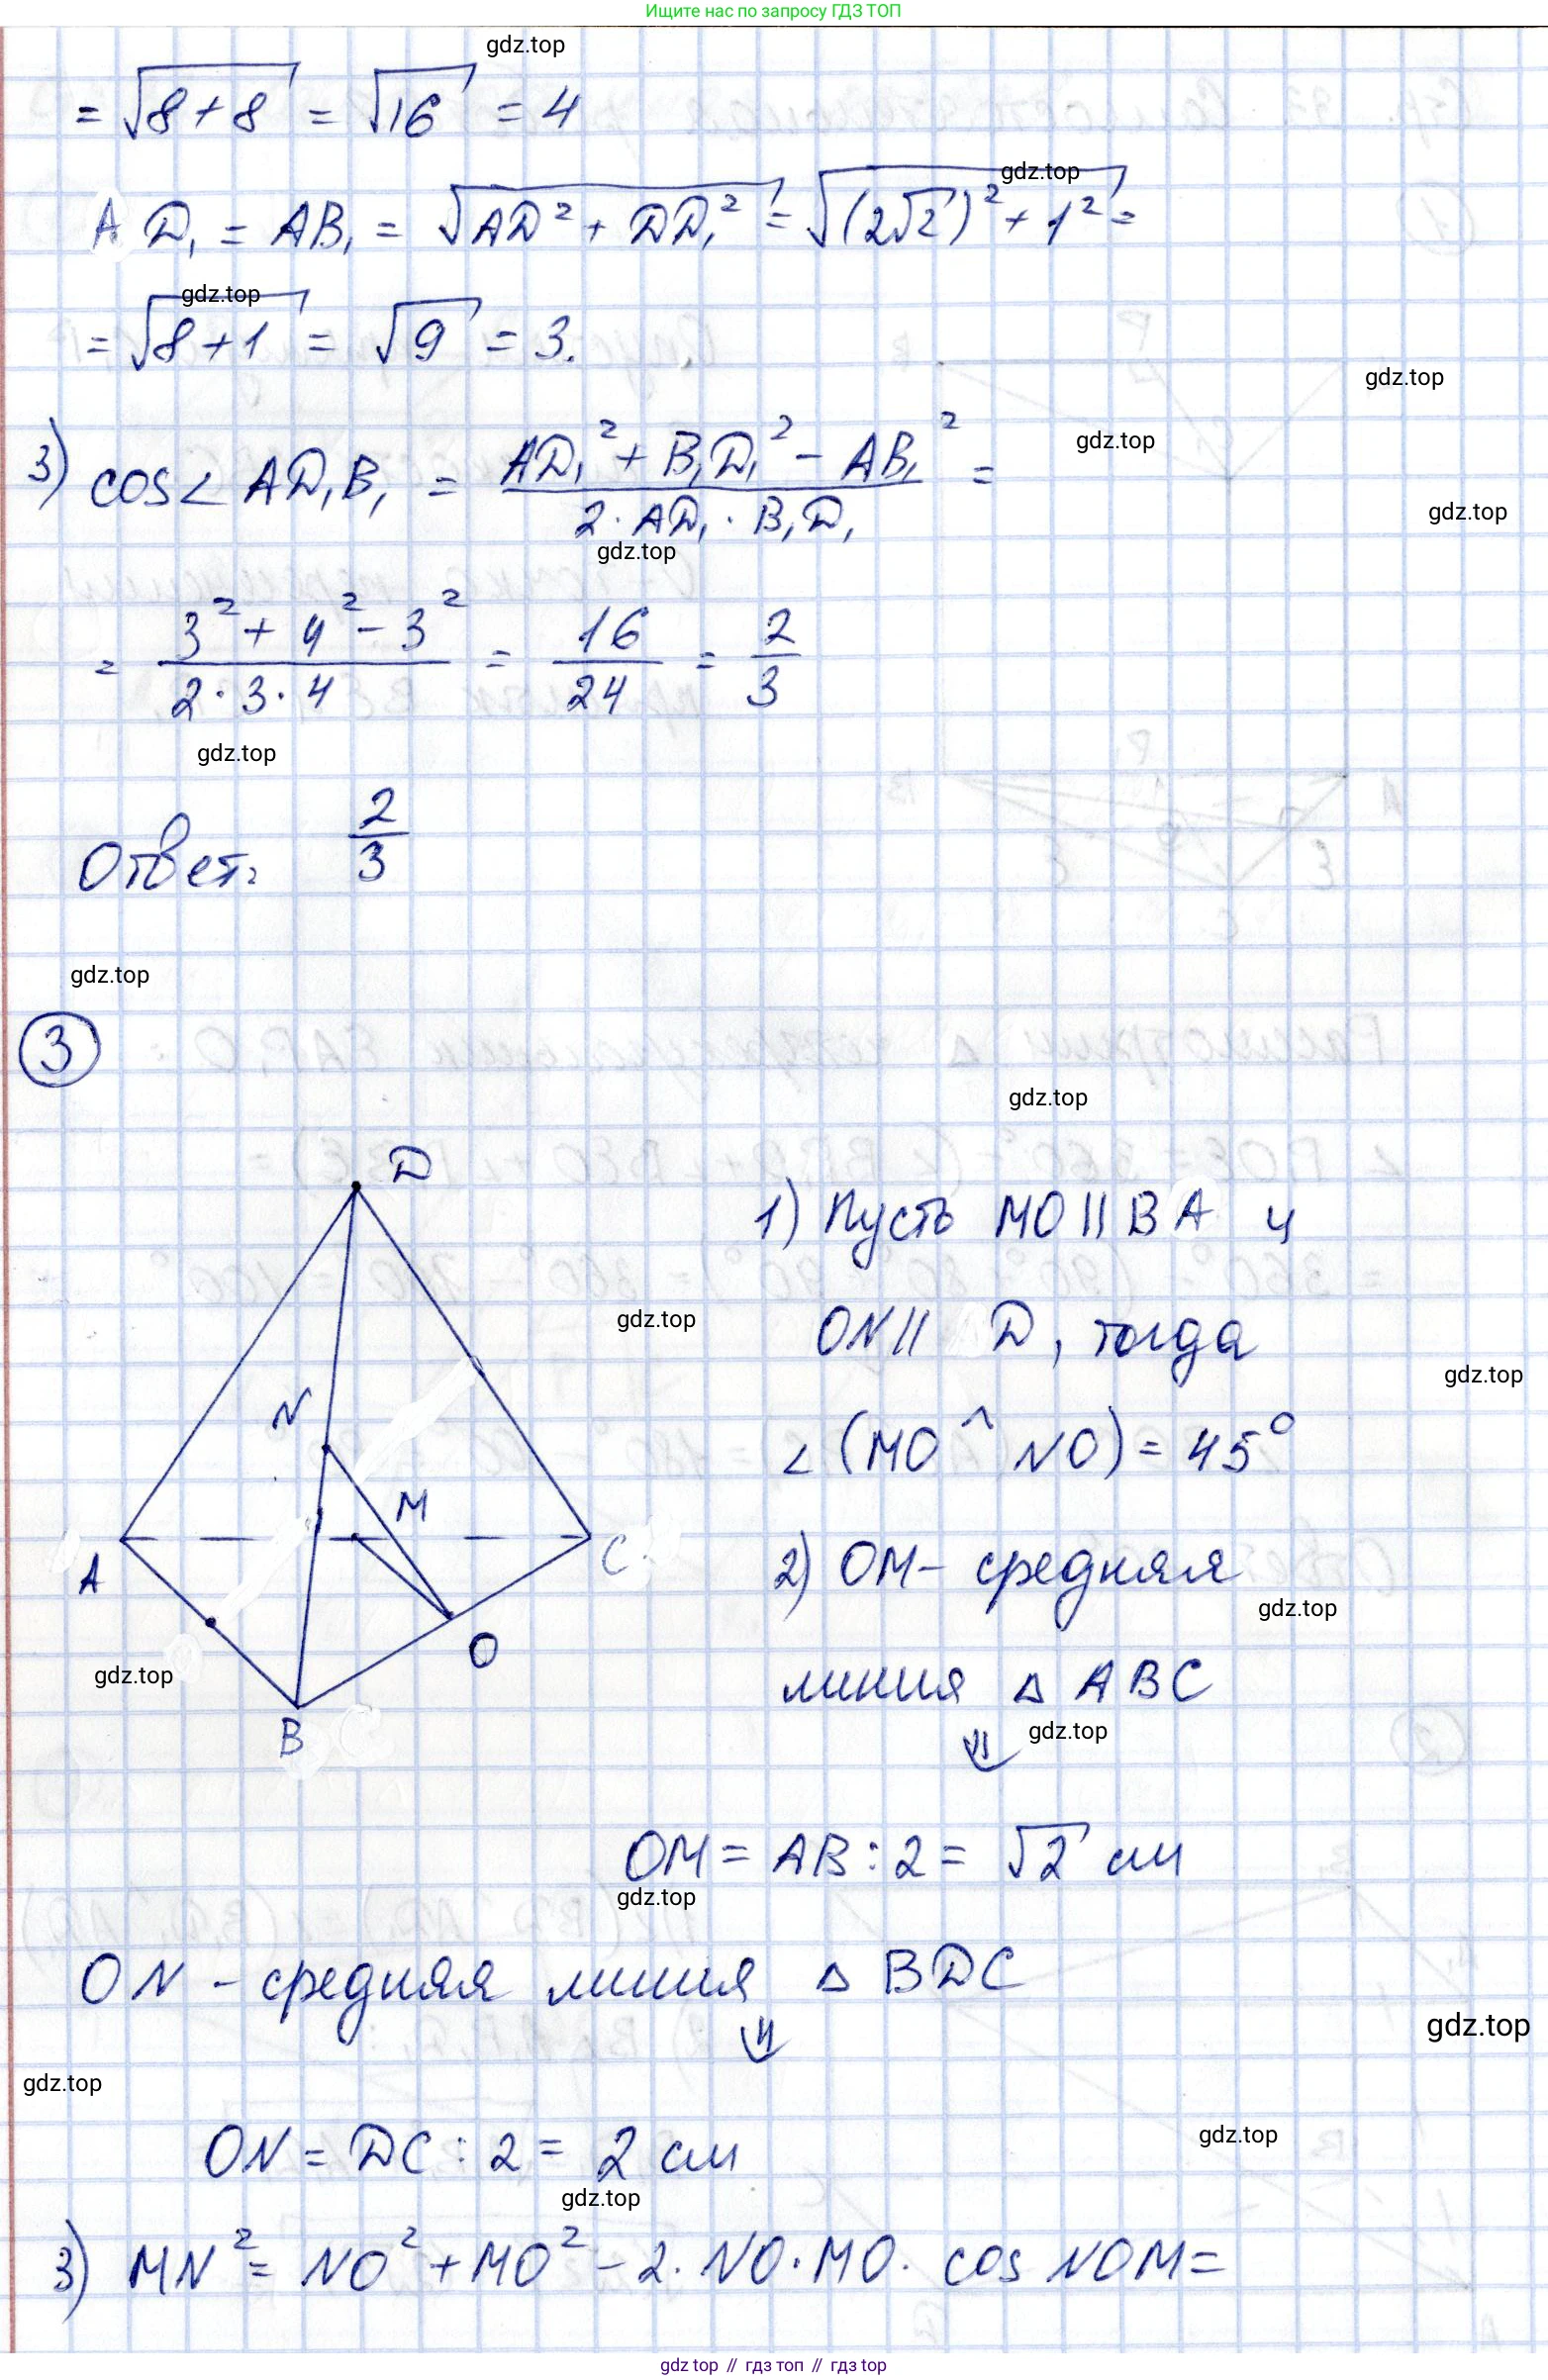 Ищите нас по запросу ГДЗ ТОП
gdz.top
= √8+8 = √16 = 4
gdz.top
AD₁ = AB₁ = √AD² + DD₁² = √(2√2)² + 1² =
gdz.top
= √8+1 = √9 = 3.
gdz.top
gdz.top
3) cos∠AD₁B₁ = (AD₁² + B₁D₁² − AB₁²)/(2·AD₁·B₁D₁) =
gdz.top
gdz.top
= (3² + 4² − 3²)/(2·3·4) = 16/24 = 2/3
gdz.top
Ответ: 2/3
gdz.top
3
gdz.top
D
1) Пусть MO||BA и
gdz.top
ON|| D, тогда
gdz.top
N
∠(MO^NO) = 45°
M
A
C
2) OM – средняя
gdz.top
O
gdz.top
линия △ABC
B
gdz.top
⇓
OM = AB : 2 = √2 см
gdz.top
ON – средняя линия △BDC
gdz.top
⇓
gdz.top
gdz.top
ON = DC : 2 = 2 см
gdz.top
3) MN² = NO² + MO² − 2·NO·MO·cos NOM =
gdz top // гдз топ // гдз top